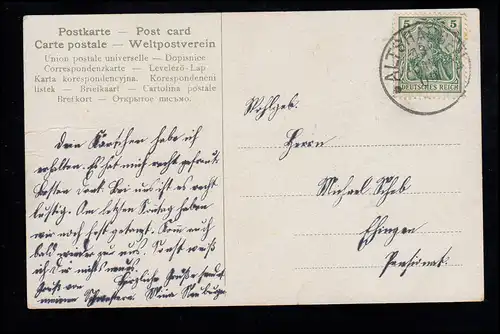 Postkarte — Post card
Carte postale — Weltpostverein
Union postale universelle — Dopisnice
Correspondenzkarte — Levelező-Lap
Karta korespondencyjna. Korespondeneni
listek — Briefkaart — Cartolina postale
Brefkort — Открытое письмо.
5 5
DEUTSCHES REICH
Dein Kärtchen habe ich
erhalten. Es hat mich recht gefreut
besten Dank. Bei uns ist es recht
lustig. Am letzten Sonntag haben
wir noch fest getanzt. Komm auch
bald wieder zu uns. Sonst weiß
ich dir nichts neues.
Gruß von Herzliche Grüße
meiner Schwester.
Wohlgeb.
Herrn
Michael Scheb
Ehingen
Pensionat.